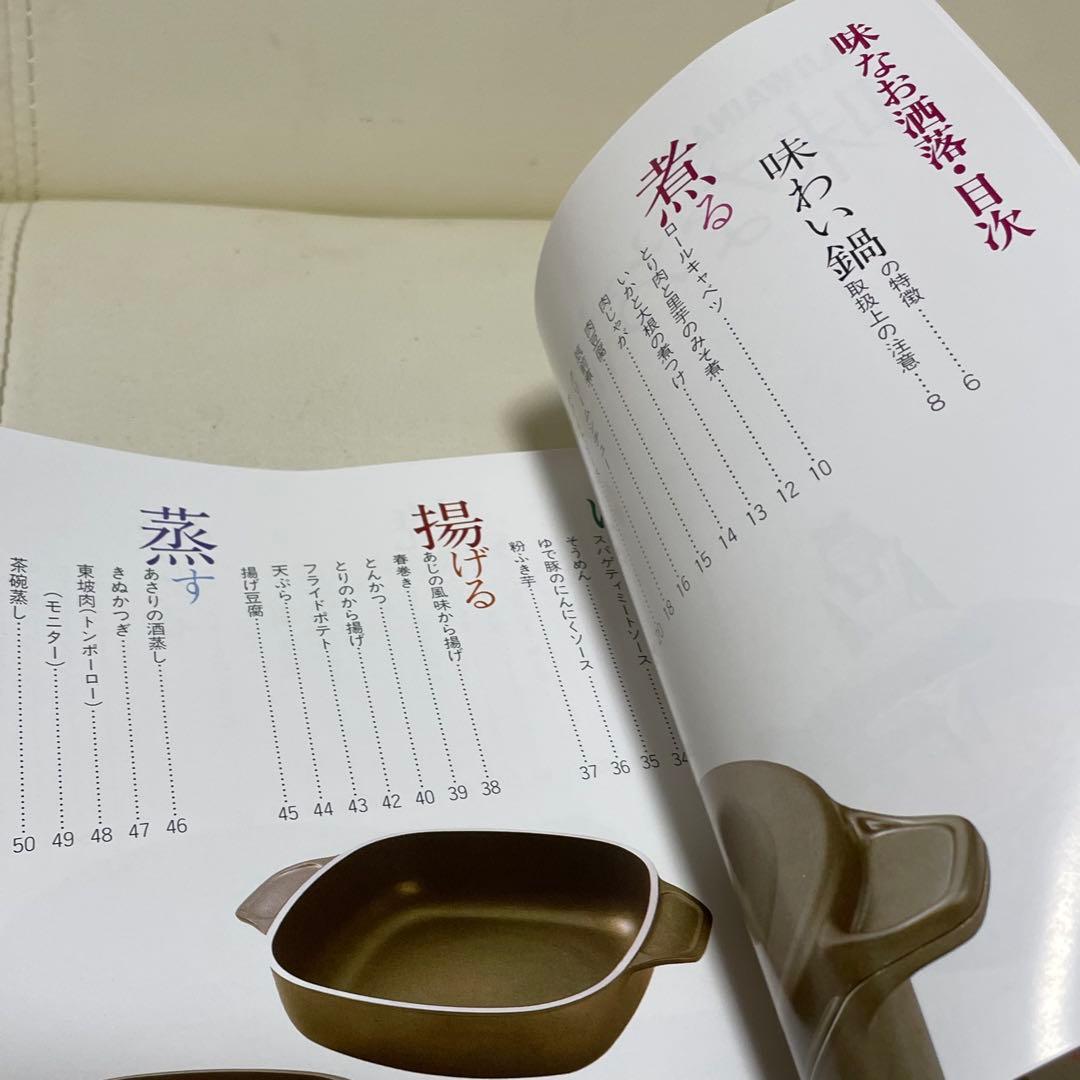 味なお洒落・目次
味わい鍋
の特徴 6
取扱上の注意 8
煮る
ロールキャベツ 10
とり肉と里芋のみそ煮 12
いかと大根の煮つけ 13
肉じゃが 14
肉豆腐 15
16
18
スパゲティミートソース 34
そうめん 35
ゆで豚のにんにくソース 36
粉ふき芋 37
揚げる
あじの風味から揚げ 38
春巻き 39
とんかつ 40
とりのから揚げ 42
フライドポテト 43
天ぷら 44
揚げ豆腐 45
蒸す
あさりの酒蒸し 46
きぬかつぎ 47
東坡肉(トンポーロー) 48
(モニター) 49
茶碗蒸し 50